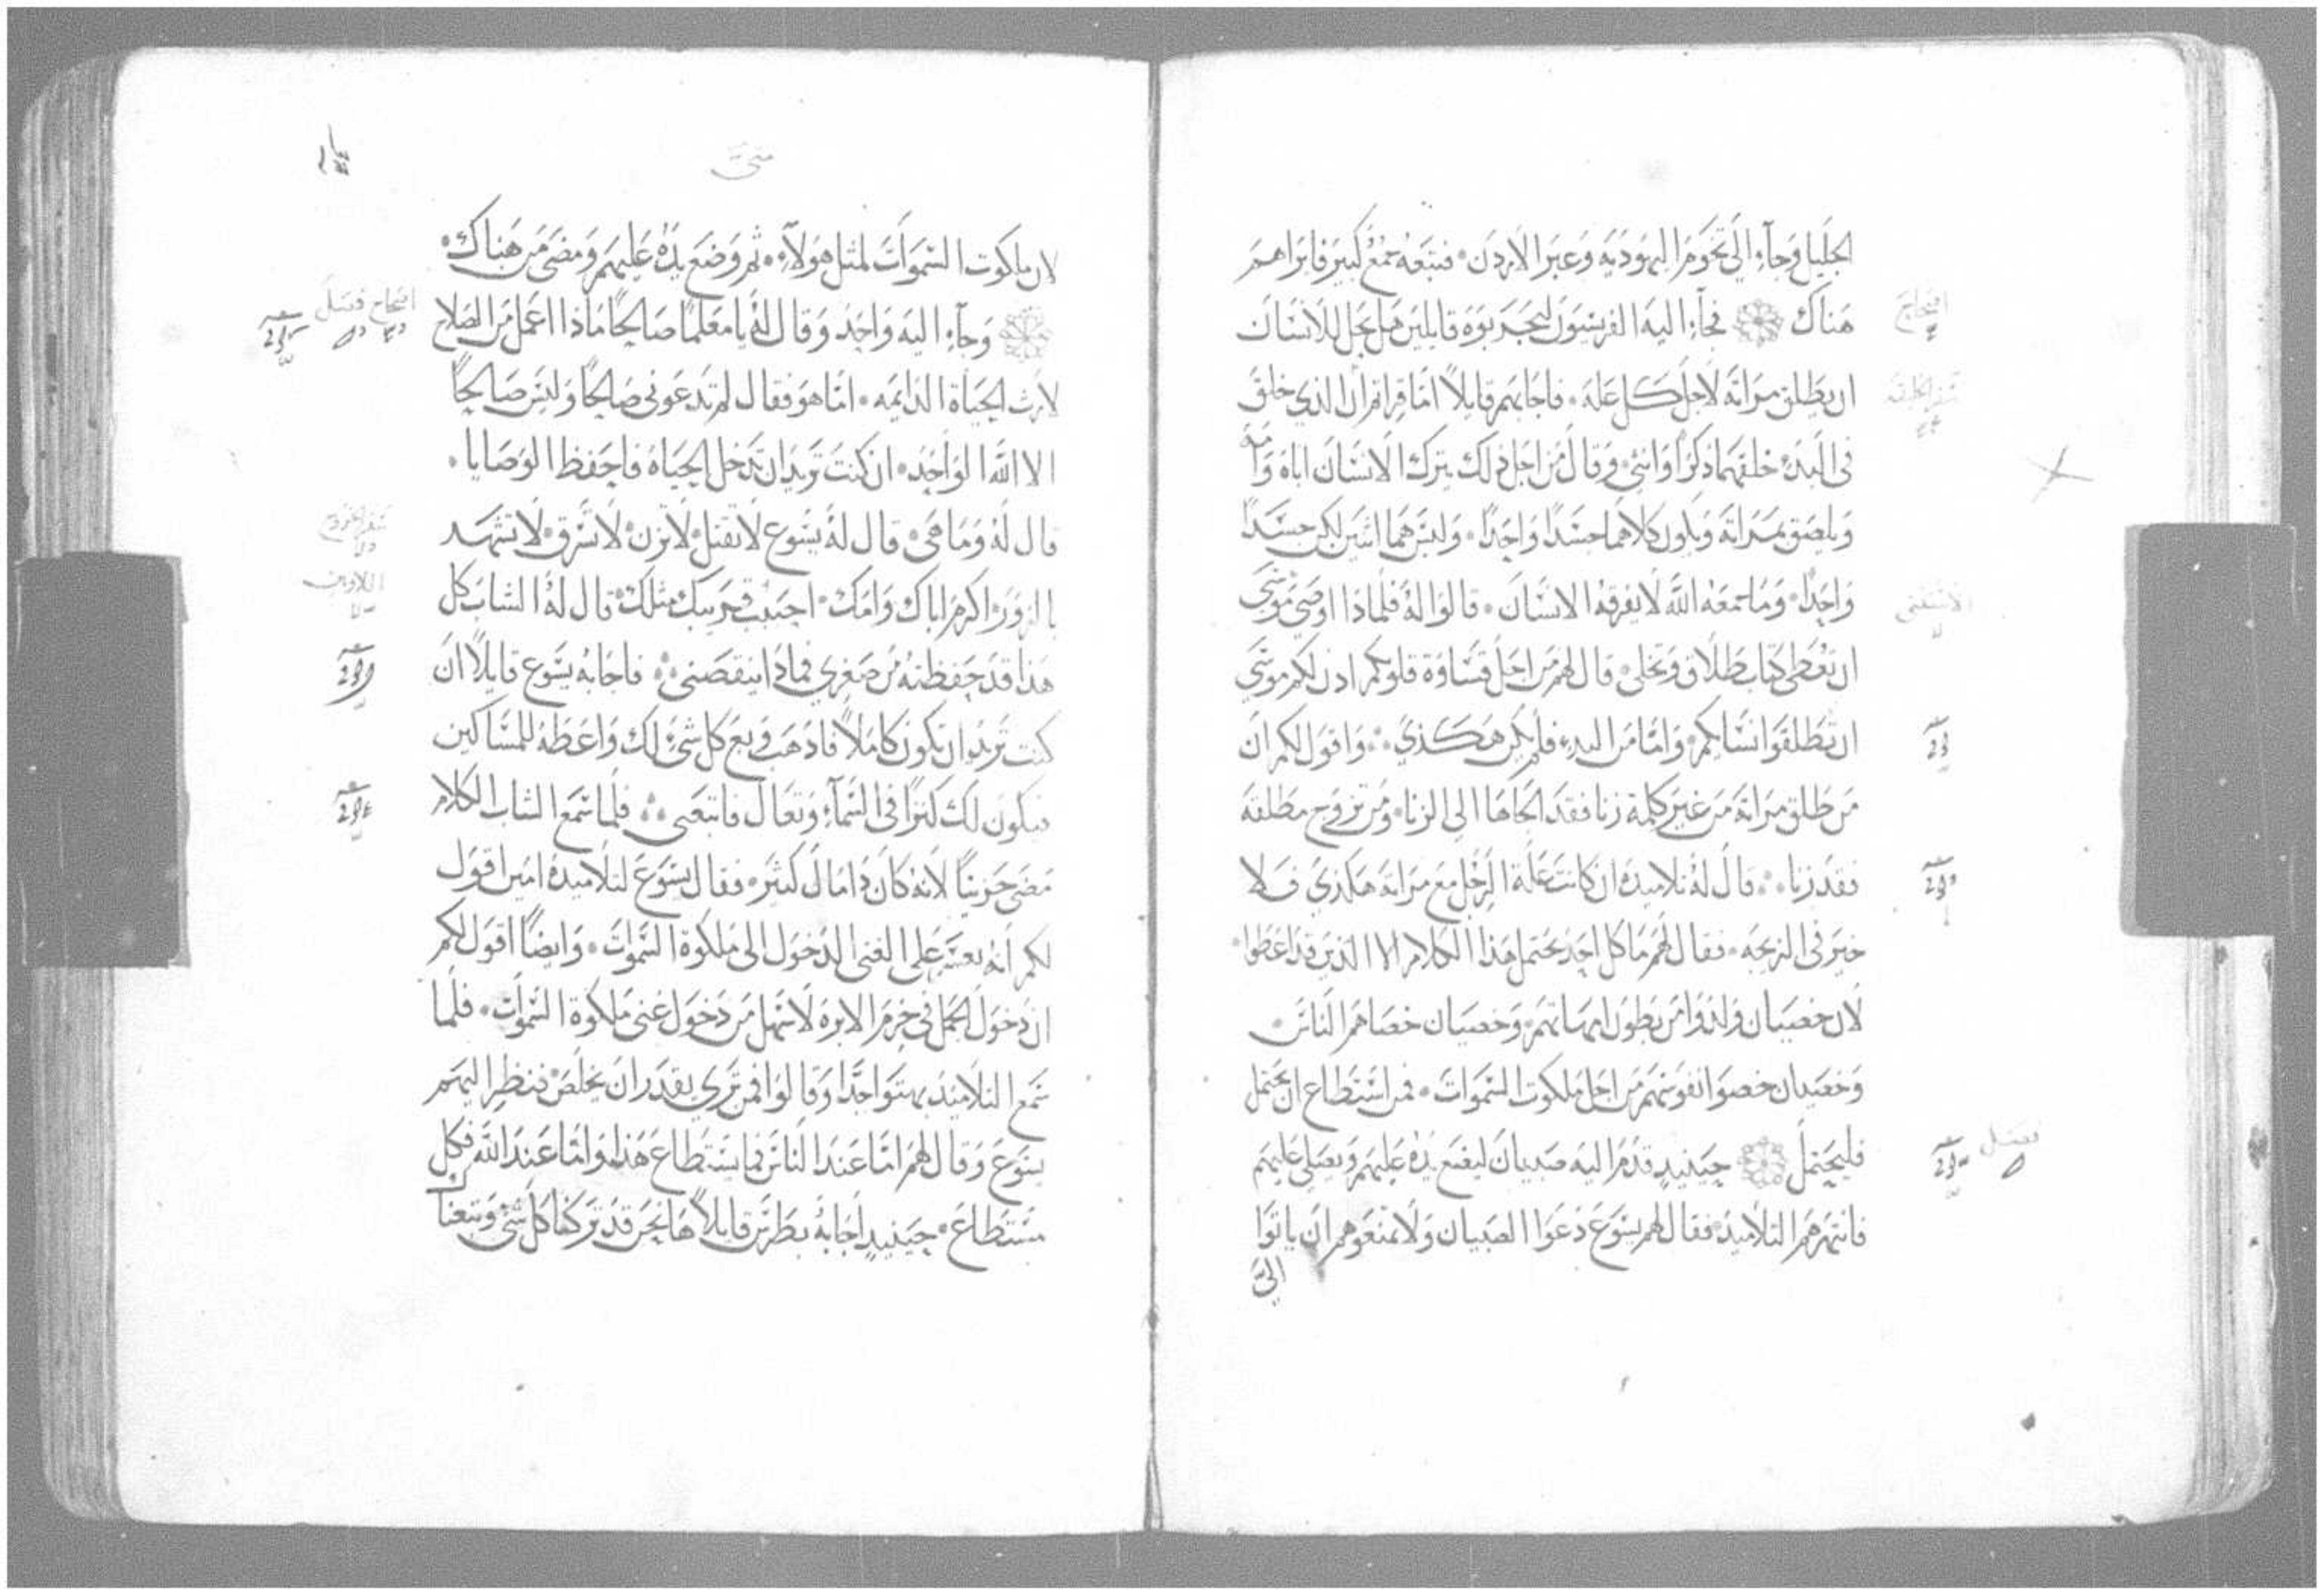 الجليل وجآء الي تخوم اليهوديه وعبر الاردن فتبعه جمع كبير فابراهم
هناك فجآء اليه الفريسيون ليجربوه قايلين هل يحل للانسان
ان يطلق مراته لاجل كل عله فاجابهم قايلاً اما قراتم ان الذي خلق
في البدء خلقهما ذكراً وانثي وقال من اجل ذلك يترك الانسان اباه وامه
ويلصق بمراته ويكون كلاهما جسداً واحداً وليس هما اثنين لكن جسداً
واحداً وما جمعه الله لا يفرقه الانسان قالوا له فلماذا اوصي موسي
ان تعطي كتاب طلاق وتخلي قال لهم من اجل قساوة قلوبكم اذن لكم موسي
ان تطلقوا نسايكم واما من البدء فلم يكن هكذي واقول لكم ان
من طلق مراته من غير كلمة زنا فقد الجاها الي الزنا ومن تزوج مطلقه
فقد زنا قال له تلاميذه ان كانت علة الرجل مع مراته هكذي فلا
خير في الزيجه فقال لهم ما كل احد يحتمل هذا الكلام الا الذين قد اعطوا
لان خصيان ولدوا من بطون امهاتهم وخصيان خصاهم الناس
وخصيان خصوا نفوسهم من اجل ملكوت السموات فمن استطاع ان يحتمل
فليحتمل حينيذٍ قدم اليه صبيان ليضع يده عليهم ويصلي عليهم
فانتهرهم التلاميذ فقال لهم يسوع دعوا الصبيان ولا تمنعوهم ان ياتوا
اليَّ
افتتاح
سفر الخليقه
الاستثنى
فصل
متى
لان ملكوت السموات لمثل هولآء ثم وضع يده عليهم ومضى من هناك
وجآء اليه واحد وقال له يا معلما صالحًا ماذا اعمل من الصلاح
لارث الحياة الدايمه اما هو فقال لم تدعوني صالحًا وليس صالحًا
الا الله الواحد ان كنت تريد ان تدخل الحياه فاحفظ الوصايا
قال له وما هي قال له يسوع لا تقتل لا تزن لا تسرق لا تشهد
بالزور اكرم اباك وامك احبب قريبك مثلك قال له الشاب كل
هذا قد حفظته من صغري فماذا ينقصني فاجابه يسوع قايلاً ان
كنت تريد ان تكون كاملاً فاذهب وبع كل شيء لك واعطه للمساكين
فيكون لك كنزًا في السمآء وتعال فاتبعني فلما سمع الشاب الكلام
مضى حزينًا لانه كان ذا مال كثير فقال يسوع لتلاميذه امين اقول
لكم انه يعسر على الغني الدخول الى ملكوة السموات وايضًا اقول لكم
ان دخول الجمل في خرم الابره لاسهل من دخول غني ملكوة السموات فلما
سمع التلاميذ بهتوا جدًا وقالوا فمن تري يقدر ان يخلص فنظر اليهم
يسوع وقال لهم اما عند الناس فما يستطاع هذا واما عند الله فكل
مستطاع حينيذٍ اجابه بطرس قايلاً ها نحن قد تركنا كل شيء وتبعناك
افتتاح فصل
سفر الخروج
اللاويين